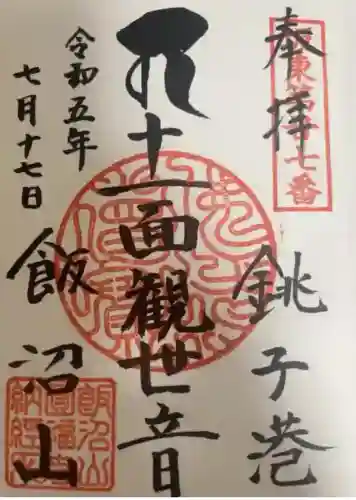 奉拝
坂東第廿七番
銚子港
十一面観世音
令和五年
七月十七日
飯沼山
飯沼山
圓福寺
納経